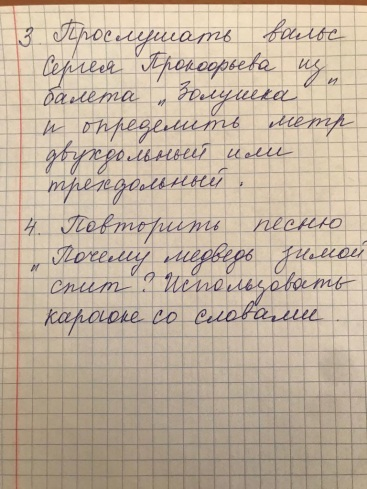 3 Прослушать вальс
Сергея Прокофьева из
балета „Золушка"
и определить метр
двухдольный или
трехдольный.
4. Повторить песню
„Почему медведь зимой
спит? Использовать
караоке со словами.